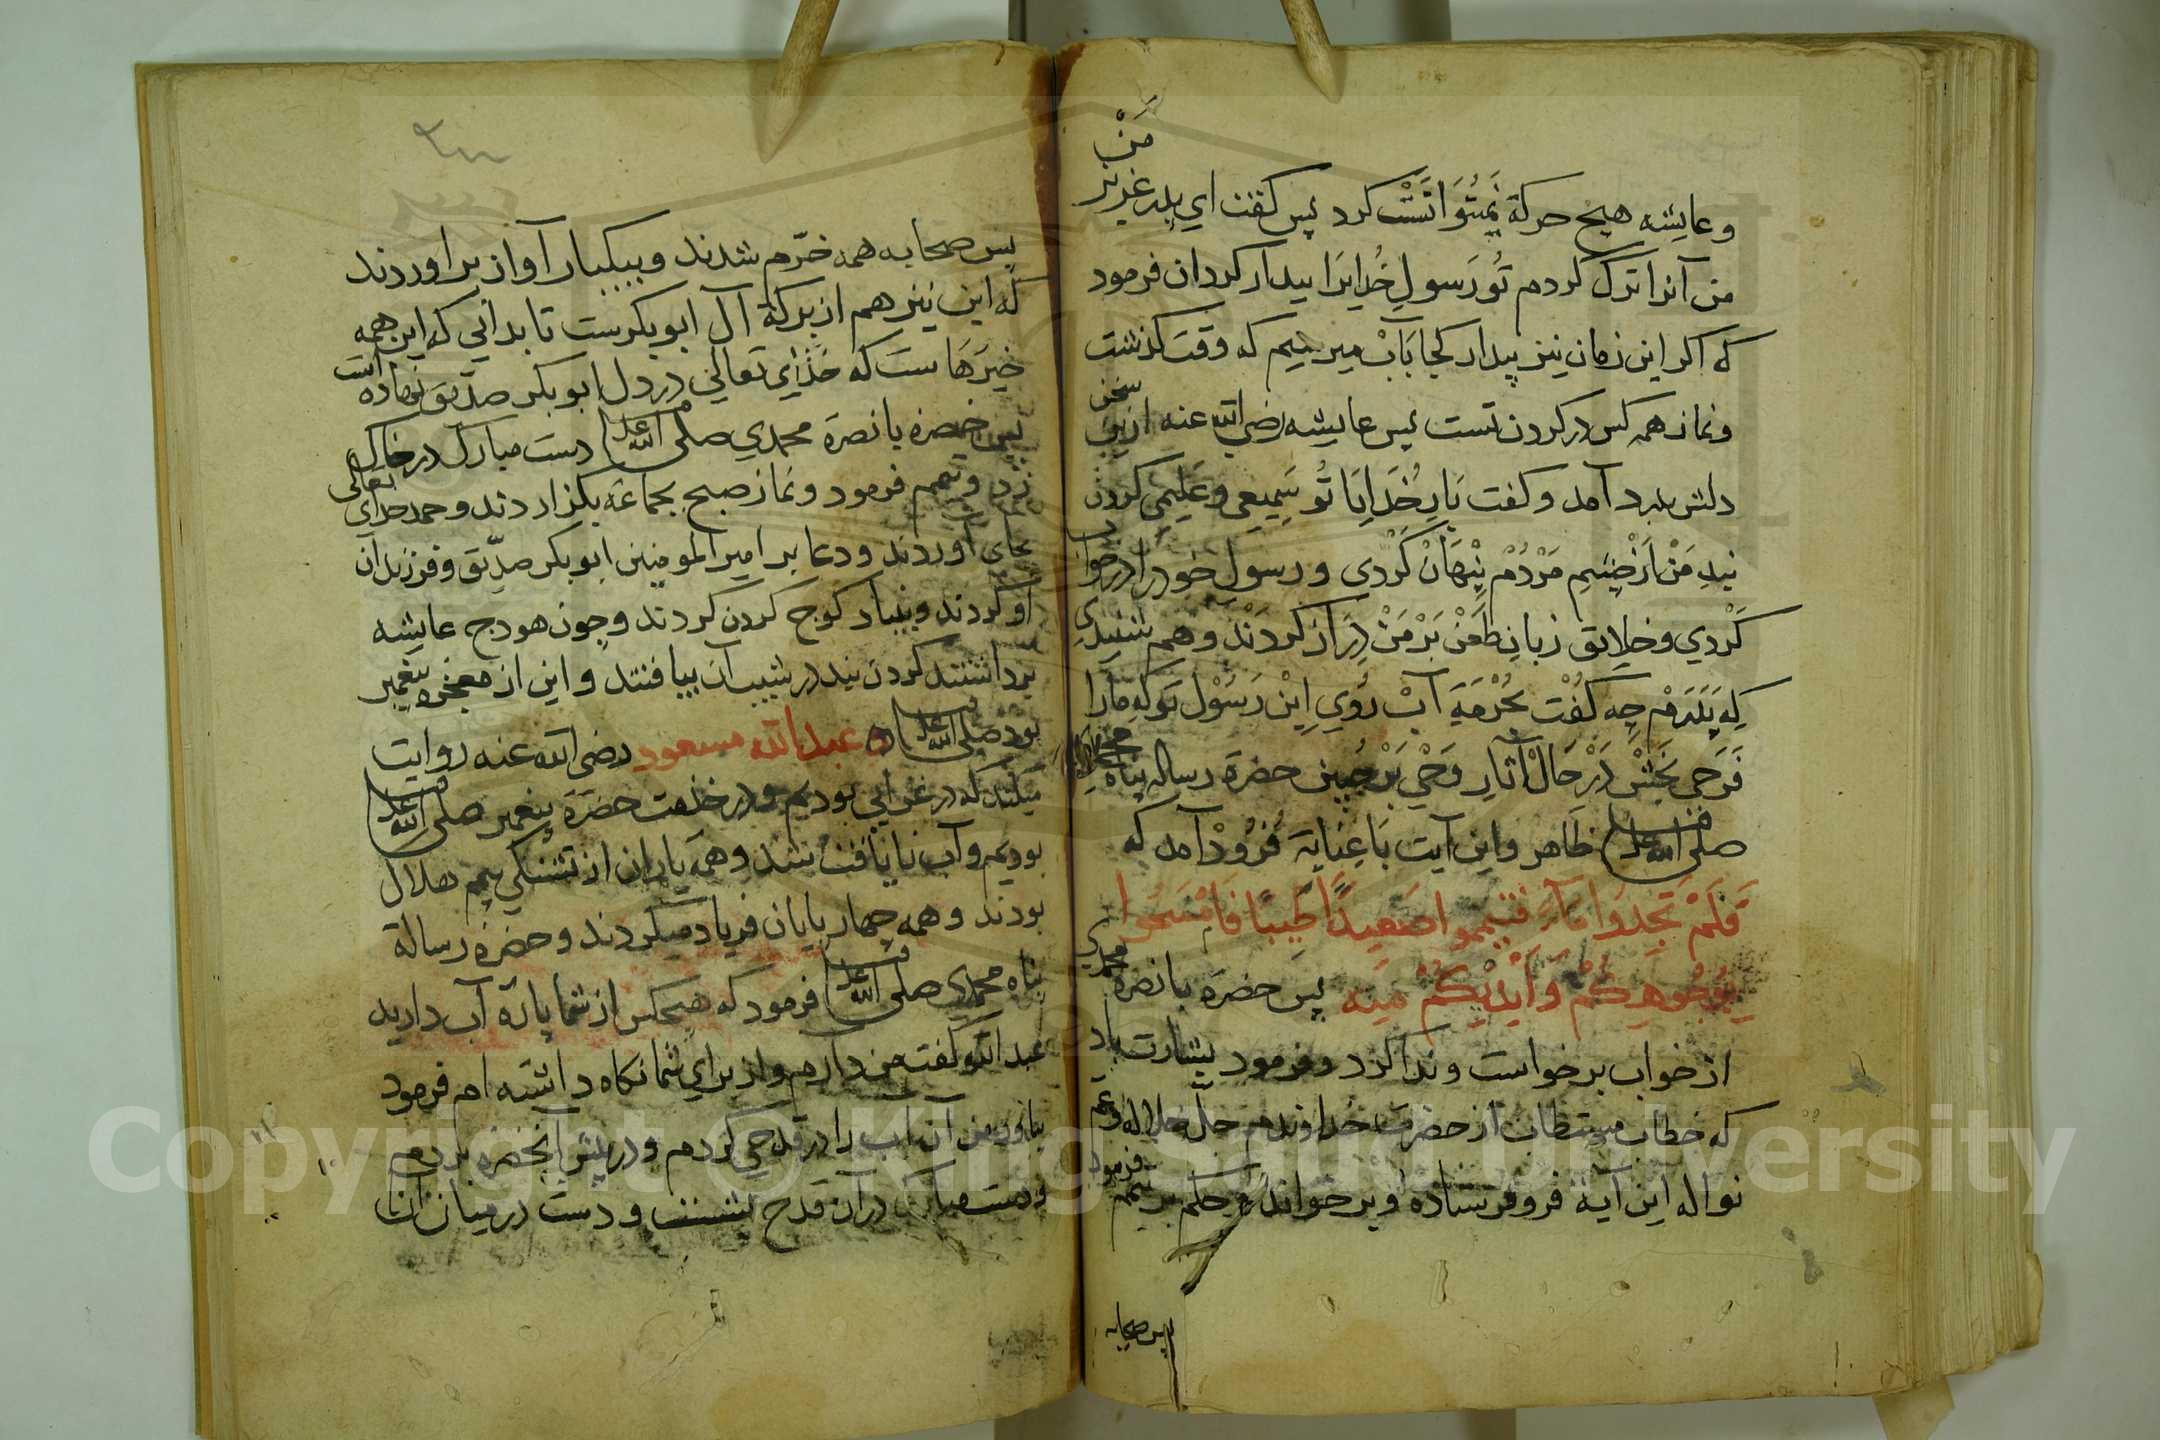 من
وعایشه هیچ حرکة نمیتوانست کرد پس کفت ای پدر عزیز
من آنرا ترک کردم تو رسول خدایرا بیدار کردان فرمود
که اکر این زمان نیز بیدار کجا بآب میرسیم که وقت کذشت
ونماز همه کس در کردن تست پس عایشه رضی الله عنه ازین سخن
دلش بدرد آمد وکفت بار خدایا تو سمیعی وعلیمی کردن
بند من از چشم مردم پنهان کردی ورسول خود را در خواب
کردی وخلایق زبان طعن بر من دراز کردند وهم شنیدی
که پدرم چه کفت بحرمة آب روی این رسول تو که مارا
فرحی بخش در حال آثار وحی بر جبین حضرة رساله پناه محمدی
صلی الله علیه ظاهر واین آیت با عنایة فرود آمد که
فلم تجدوا ماء فتیمموا صعیدا طیبا فامسحوا
بوجوهکم وایدیکم منه پس حضرة بانصرة محمدی
از خواب برخواست وندا کرد وفرمود بشارت باد
که خطاب مستطاب از حضرت خداوندم جل جلاله وعم
نواله این آیة فرو فرستاده وبرخواند وحکم بر تیمم فرمود
پس صحابه
پس صحابه همه خرّم شدند وبیکبار آواز براوردند
که این نیز هم از برکة آل ابوبکرست تا بدانی که این همه
خیرهاست که خدای تعالی در دل ابوبکر صدّیق نهاده است
پس حضرة بانصرة محمدی صلی الله علیه دست مبارک در خاک
زد وتیمم فرمود ونماز صبح بجماعة بکزاردند وحمد خدای تعالی
بجای آوردند ودعا بر امیر المومنین ابوبکر صدّیق وفرزندان
او کردند وبنیاد کوچ کردن کردند وچون هودج عایشه
برداشتند کردن بند در شیب آن بیافتند واین از معجزه پیغمبر
بود صلی الله علیه و عبدالله مسعود رضی الله عنه روایت
میکند که در غزایی بودیم ودر خدمت حضرة پیغمبر صلی الله علیه
بودیم وآب نایافت شد وهمه یاران از تشنکی بیم هلال
بودند وهمه چهار پایان فریاد میکردند وحضرة رسالة
پناه محمدی صلی الله علیه فرمود که هیچکس از شما پارۀ آب دارید
عبدالله کفت من دارم واز برای شما نکاه داشته ام فرمود
بیاور من آن آب را در قدحی کردم ودر پیش آنحضرة بردم
دست مبارک در آن قدح بشست ودست در میان آن